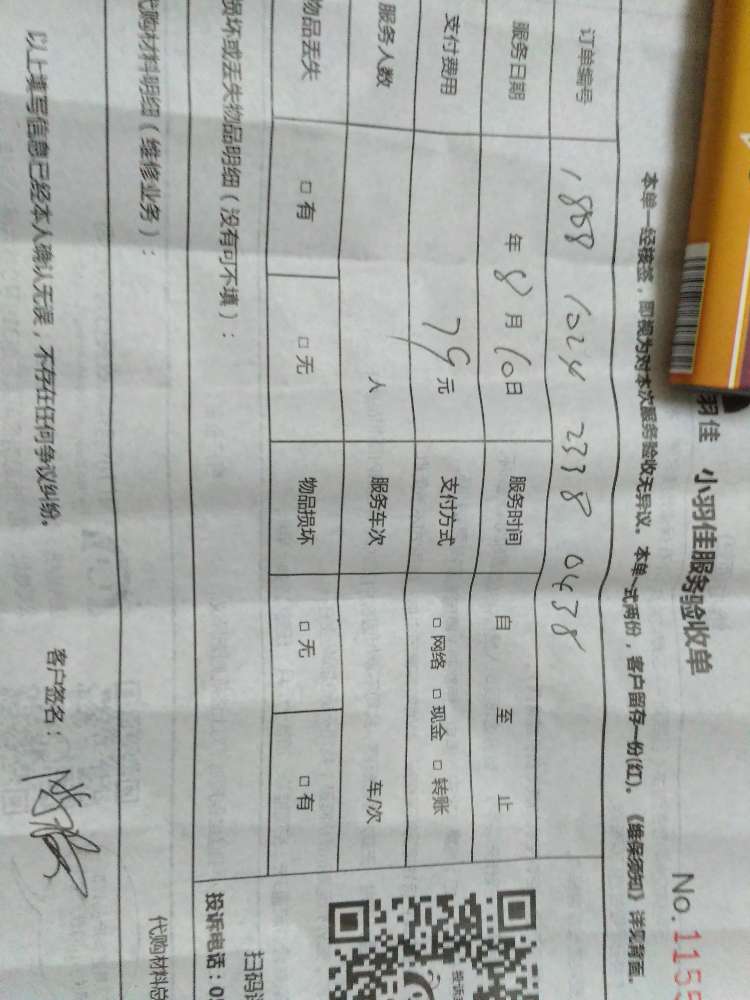 羽佳 小羽佳服务验收单 No.115
本单一经核签，即视为对本次服务验收无异议。本单一式两份，客户留存一份(红)。《维保须知》详见背面。
订单编号 1888 1024 2338 0438
服务日期 年 8 月 10 日 服务时间 自 至 止
支付费用 79 元 支付方式 □ 网络 □ 现金 □ 转账
服务人数 人 服务车次 车/次
物品丢失 □ 有 □ 无 物品损坏 □ 无 □ 有
损坏或丢失物品明细（没有可不填）：
代购材料明细（维修业务）：
代购材料总
以上填写信息已经本人确认无误，不存在任何争议纠纷。
客户签名：
投诉
扫码
投诉电话：0